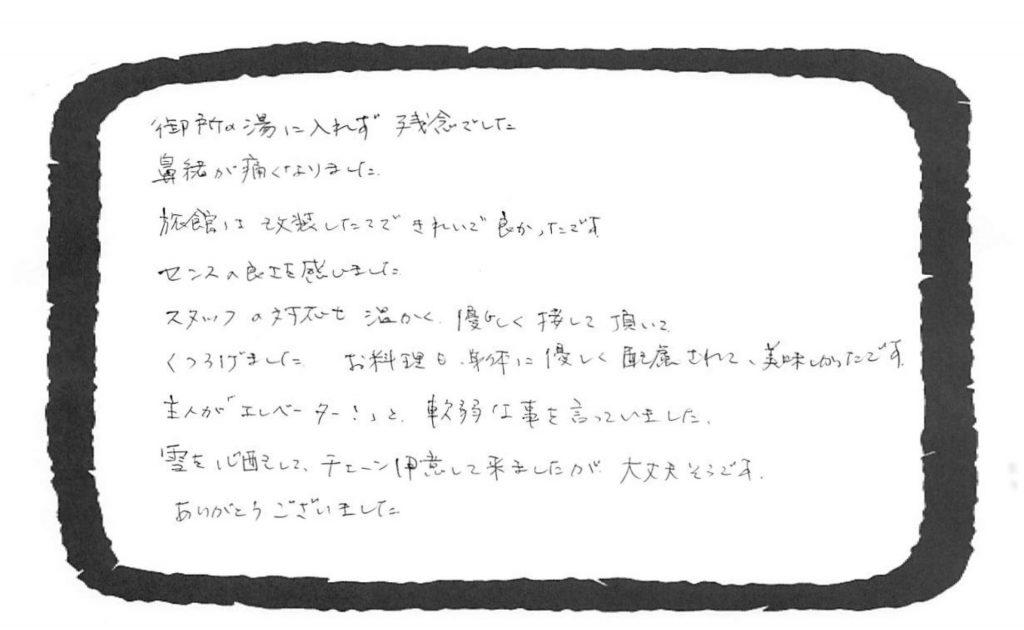 御所の湯に入れず 残念でした
鼻緒が痛くなりました.
旅館は 改装したてで きれいで 良かったです
センスの良さを感じました
スタッフの対応も 温かく、優しく 接して 頂いて
くつろげました お料理も 身体に優しく 配慮されて、美味しかったです.
主人が「エレベーター!」と、軟弱な事を言っていました.
雪を心配して、チェーン用意して来ましたが 大丈夫そうです.
ありがとうございました